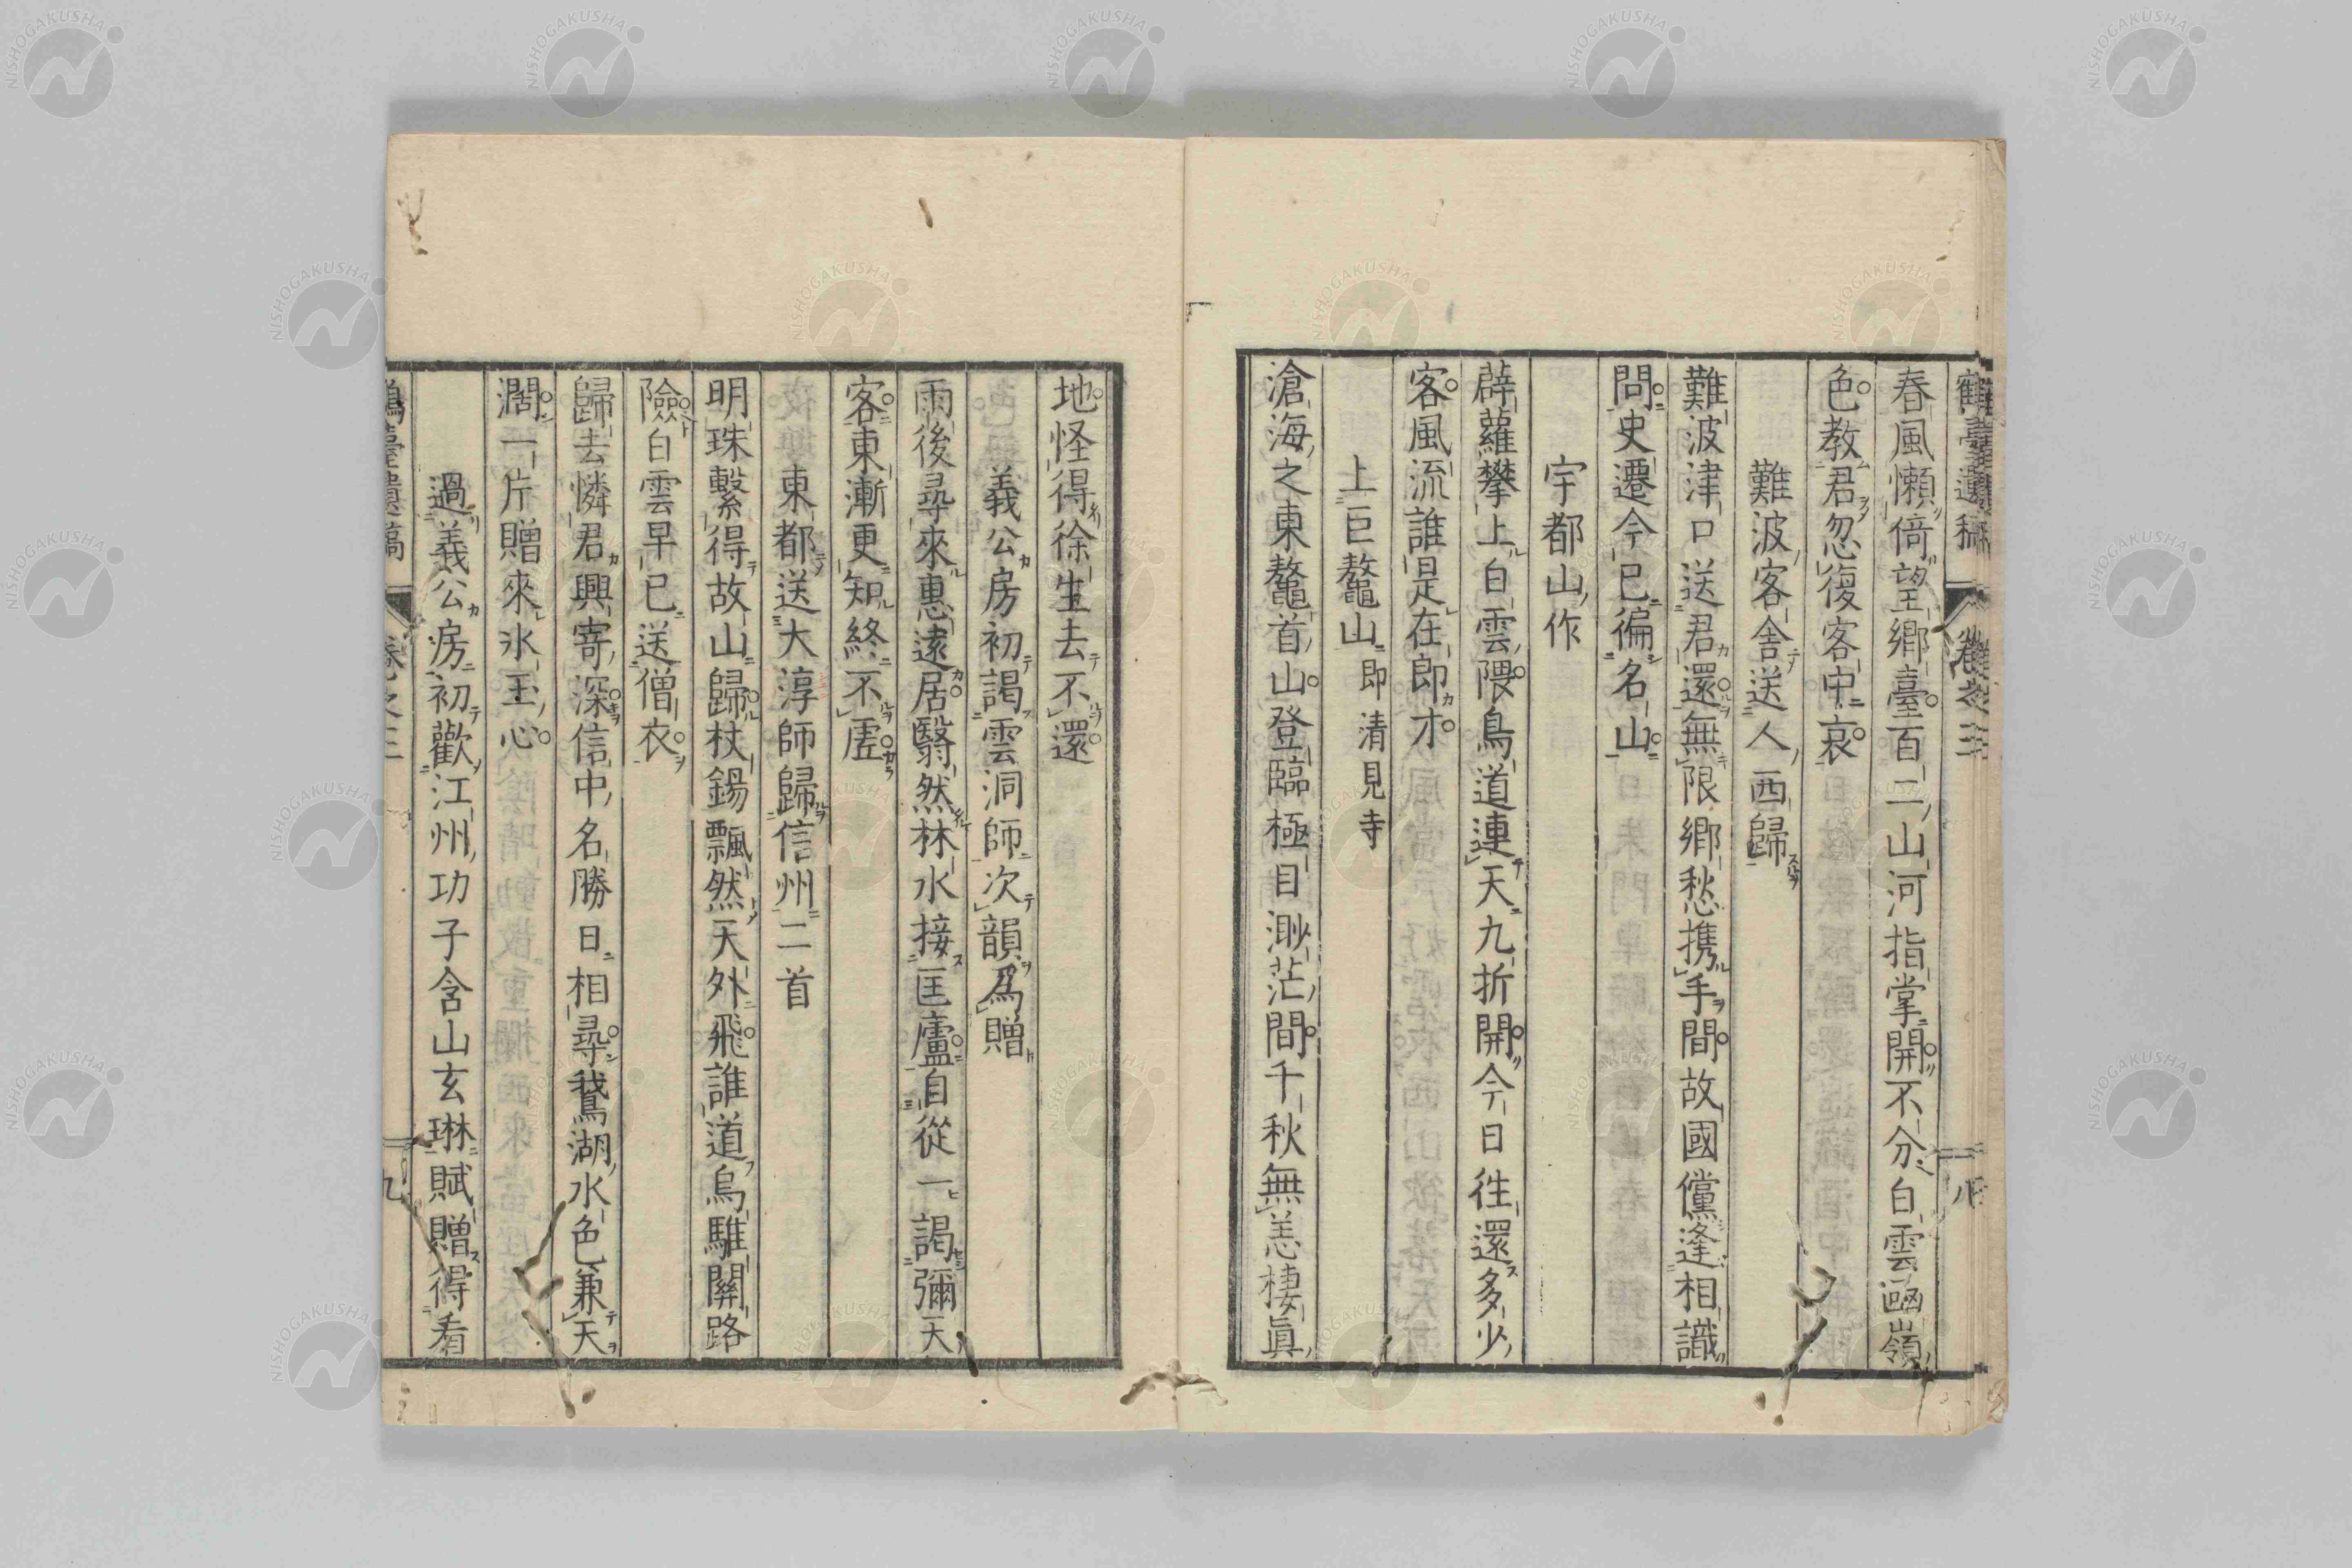 鶴臺遺稿 卷之三 八
春風懶倚望鄉臺百二山河指掌開不分白雲函嶺
色教君忽復客中哀
難波客舍送人西歸
難波津口送君還無限鄉愁携手間故國儻逢相識
問史遷今已徧名山
宇都山作
薜蘿攀上白雲隈鳥道連天九折開今日往還多少
客風流誰是在郎才
上巨鼇山即清見寺
滄海之東鼇首山登臨極目渺茫間千秋無恙棲眞
地怪得徐生去不還
義公房初謁雲洞師次韻爲贈
雨後尋來惠遠居翳然林水接匡廬自從一謁彌天
客東漸更知終不虛
東都送大淳師歸信州二首
明珠繫得故山歸杖錫飄然天外飛誰道烏騅關路
險白雲早已送僧衣
歸去憐君興寄深信中名勝日相尋鵞湖水色兼天
濶一片贈來氷玉心
過義公房初歡江州功子含山玄琳賦贈得看
鶴臺遺稿 卷之三 九
NISHOGAKUSHA